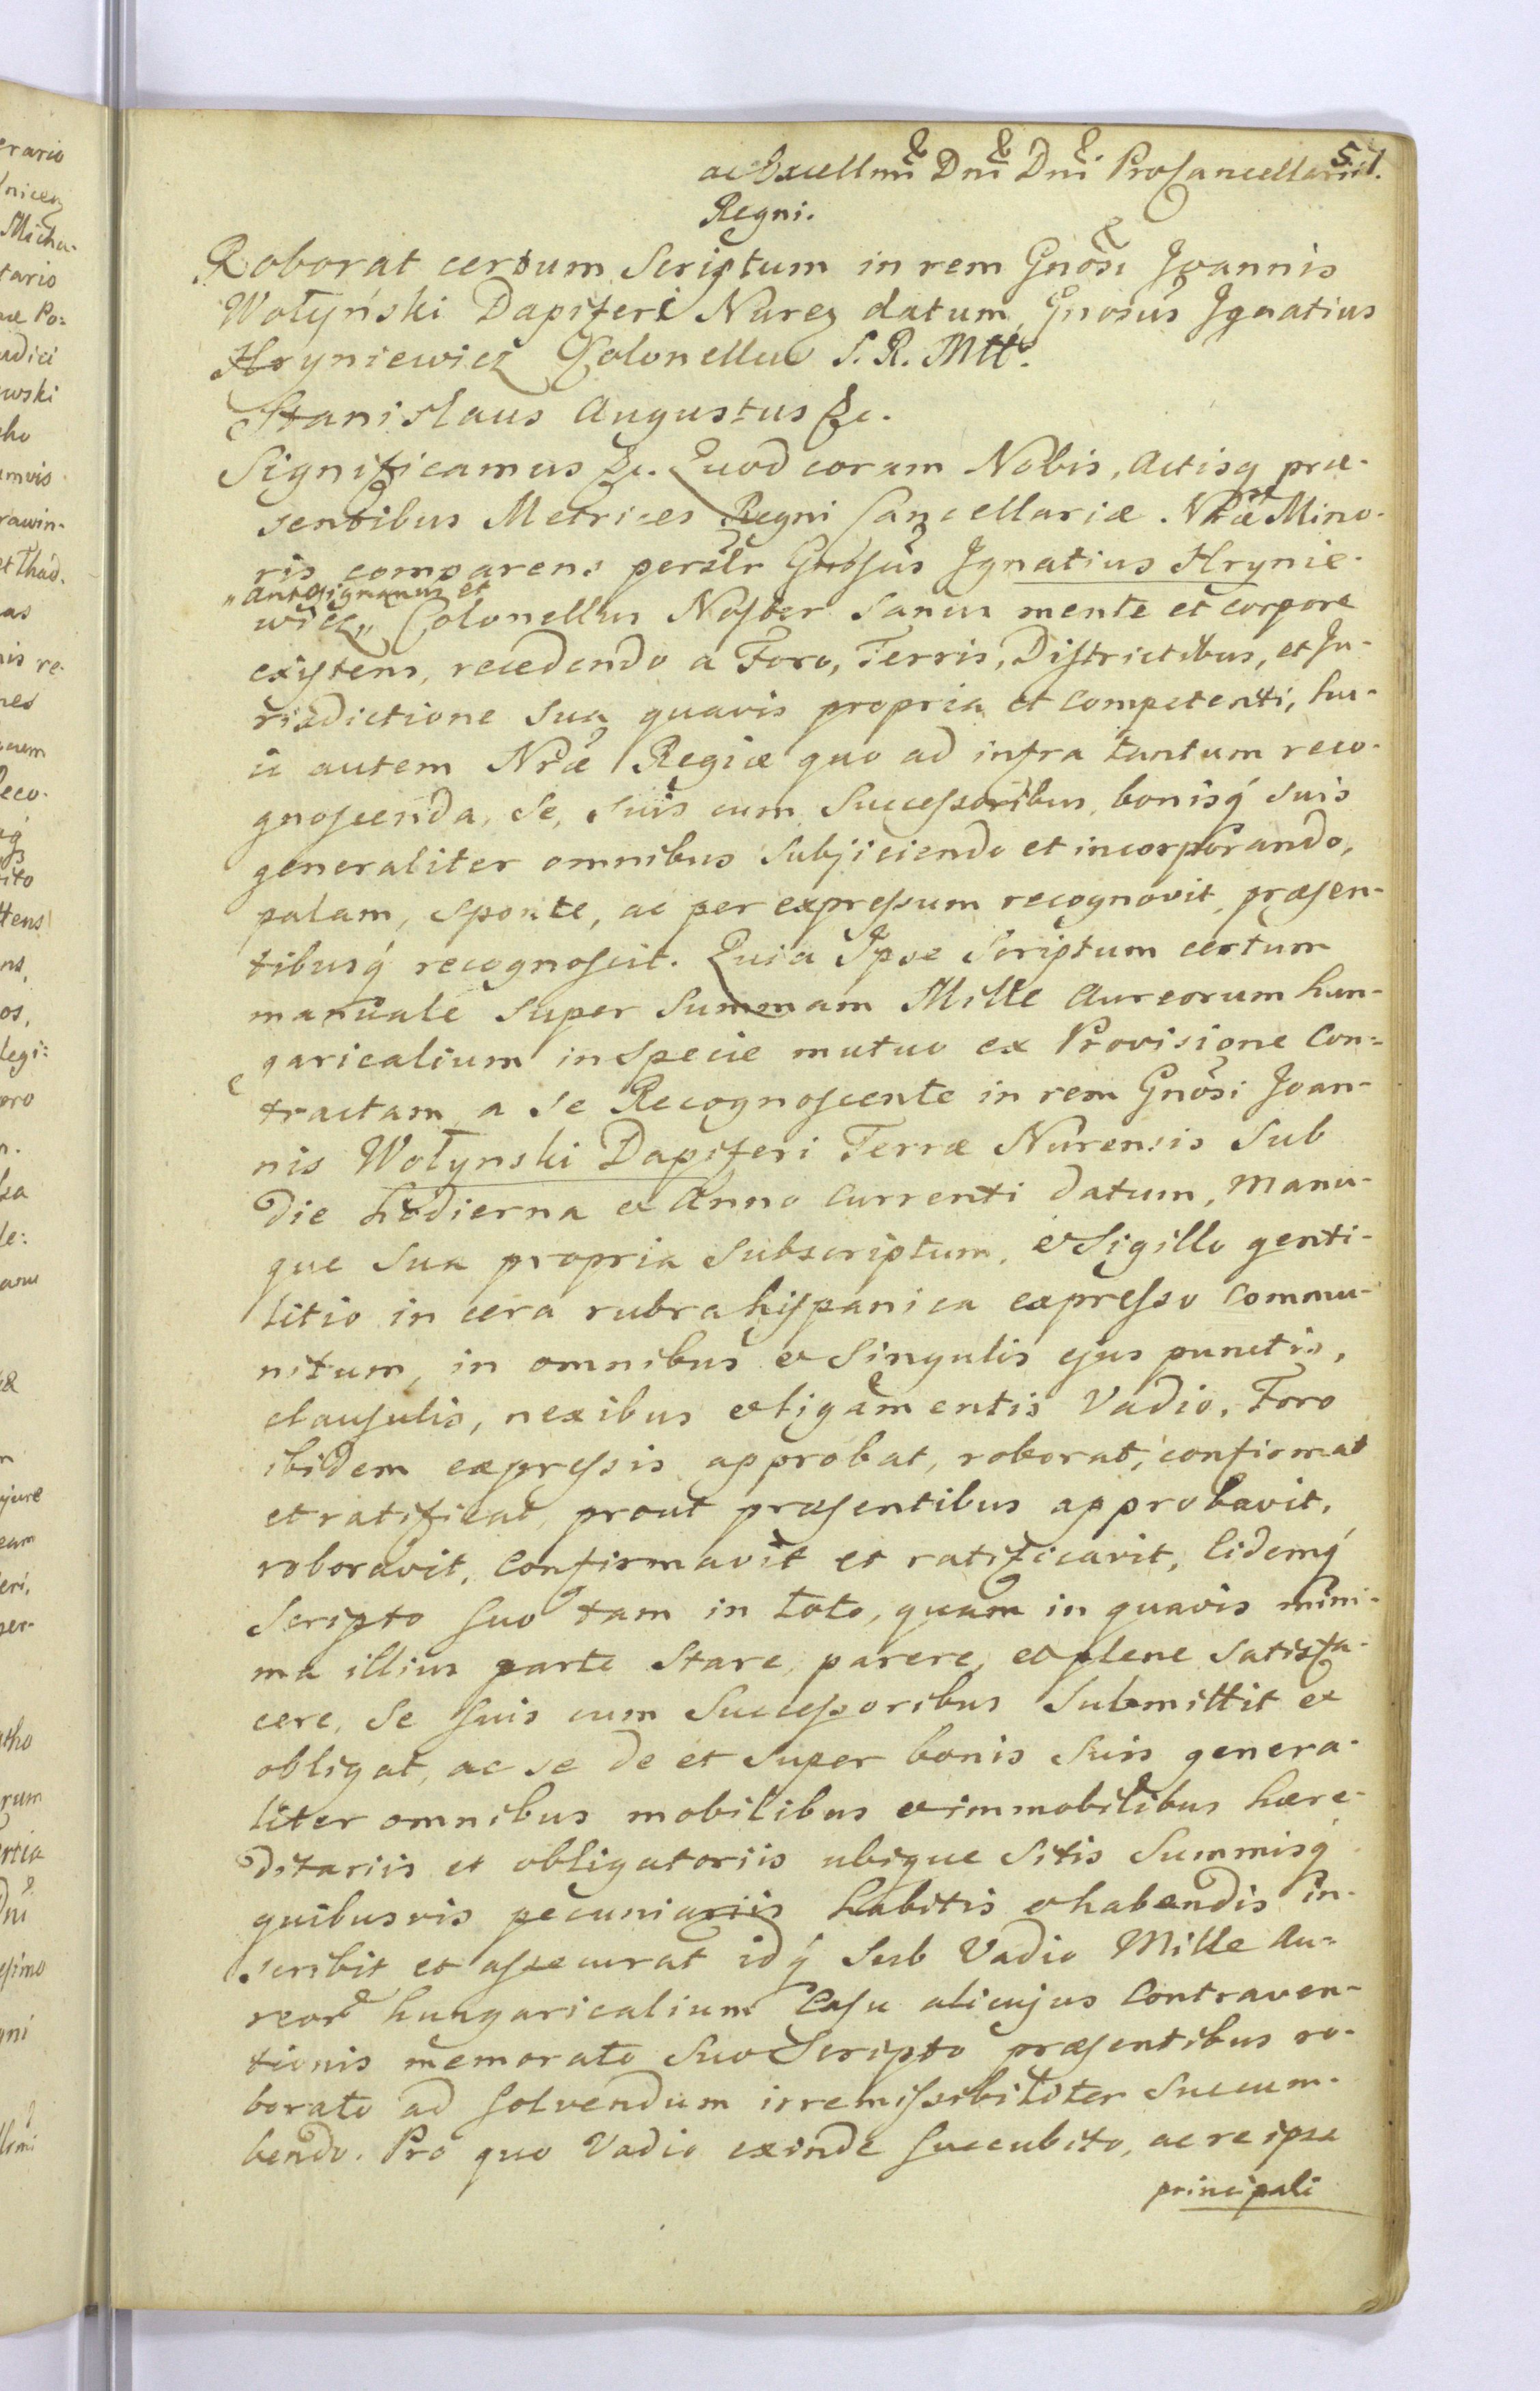 51.
ac Excellmi Dni Dni ProCancellarii
Regni.
Roborat certum Scriptum in rem Gnosi Joannis
Wołyński Dapiferi Nurez datum, Gnosus Ignatius
Hryniewicz Colonellus S. R. Mtt.
Stanislaus Augustus &c.
Significamus &c. Quod coram Nobis, Actisq præ-
sentibus Metrices Regni Cancellariæ Nræ Mino-
ris comparens persltr Gnosus Ignatius Hrynie-
„Antesignanus et
wicz„ Colonellus Noster Sanus mente et corpore
existens, recedendo a Foro, Terris, Districtibus, et Ju-
risdictione Sua quavis propria et competenti, hu-
ic autem Nræ Regiæ quo ad infra tantum reco-
gnoscenda, Se, Suis cum Successoribus, bonisq́ suis
generaliter omnibus Subjiciendo et incorporando,
palam, sponte, ac per expressum recognovit, præsen-
tibusq́ recognoscit. Quia Ipse Scriptum certum
manuale Super Summam Mille Aureorum hun-
garicalium in Specie mutuo ex Provisione Con-
tractam a Se Recognoscente in rem Gnosi Joan-
nis Wołynski Dapiferi Terræ Nurensis Sub
die hodierna et Anno Currenti datum, manu-
que Sua propria Subscriptum, et Sigillo genti-
litio in cera rubra hispanica expresso Commu-
nitum, in omnibus et Singulis ejus punctis,
clausulis, nexibus et ligamentis Vadio, Foro
ibidem expressis approbat, roborat, confirmat
et ratificat, prout præsentibus approbavit,
roboravit, Confirmavit et ratificavit, Eidemq́
Scripto Suo tam in toto, quam in quavis mini-
ma illius parte Stare, parere, et plene Satisfa-
cere, Se Suis cum Successoribus Submittit et
obligat, ac se de et Super bonis Suis genera-
liter omnibus mobilibus et immobilibus hære-
ditariis et obligatoriis ubique Sitis Summisq́
quibusvis pecuniariis habitis et habendis in-
scribit et assecurat idq́ Sub Vadio Mille Au-
reor hungaricalium Casu alicujus Contraven-
tionis memorato Suo Scripto præsentibus ro-
borato ad Solvendum irremissibiliter Succum-
bendo. Pro quo Vadio exinde Succubito, ac re ipsa
principali